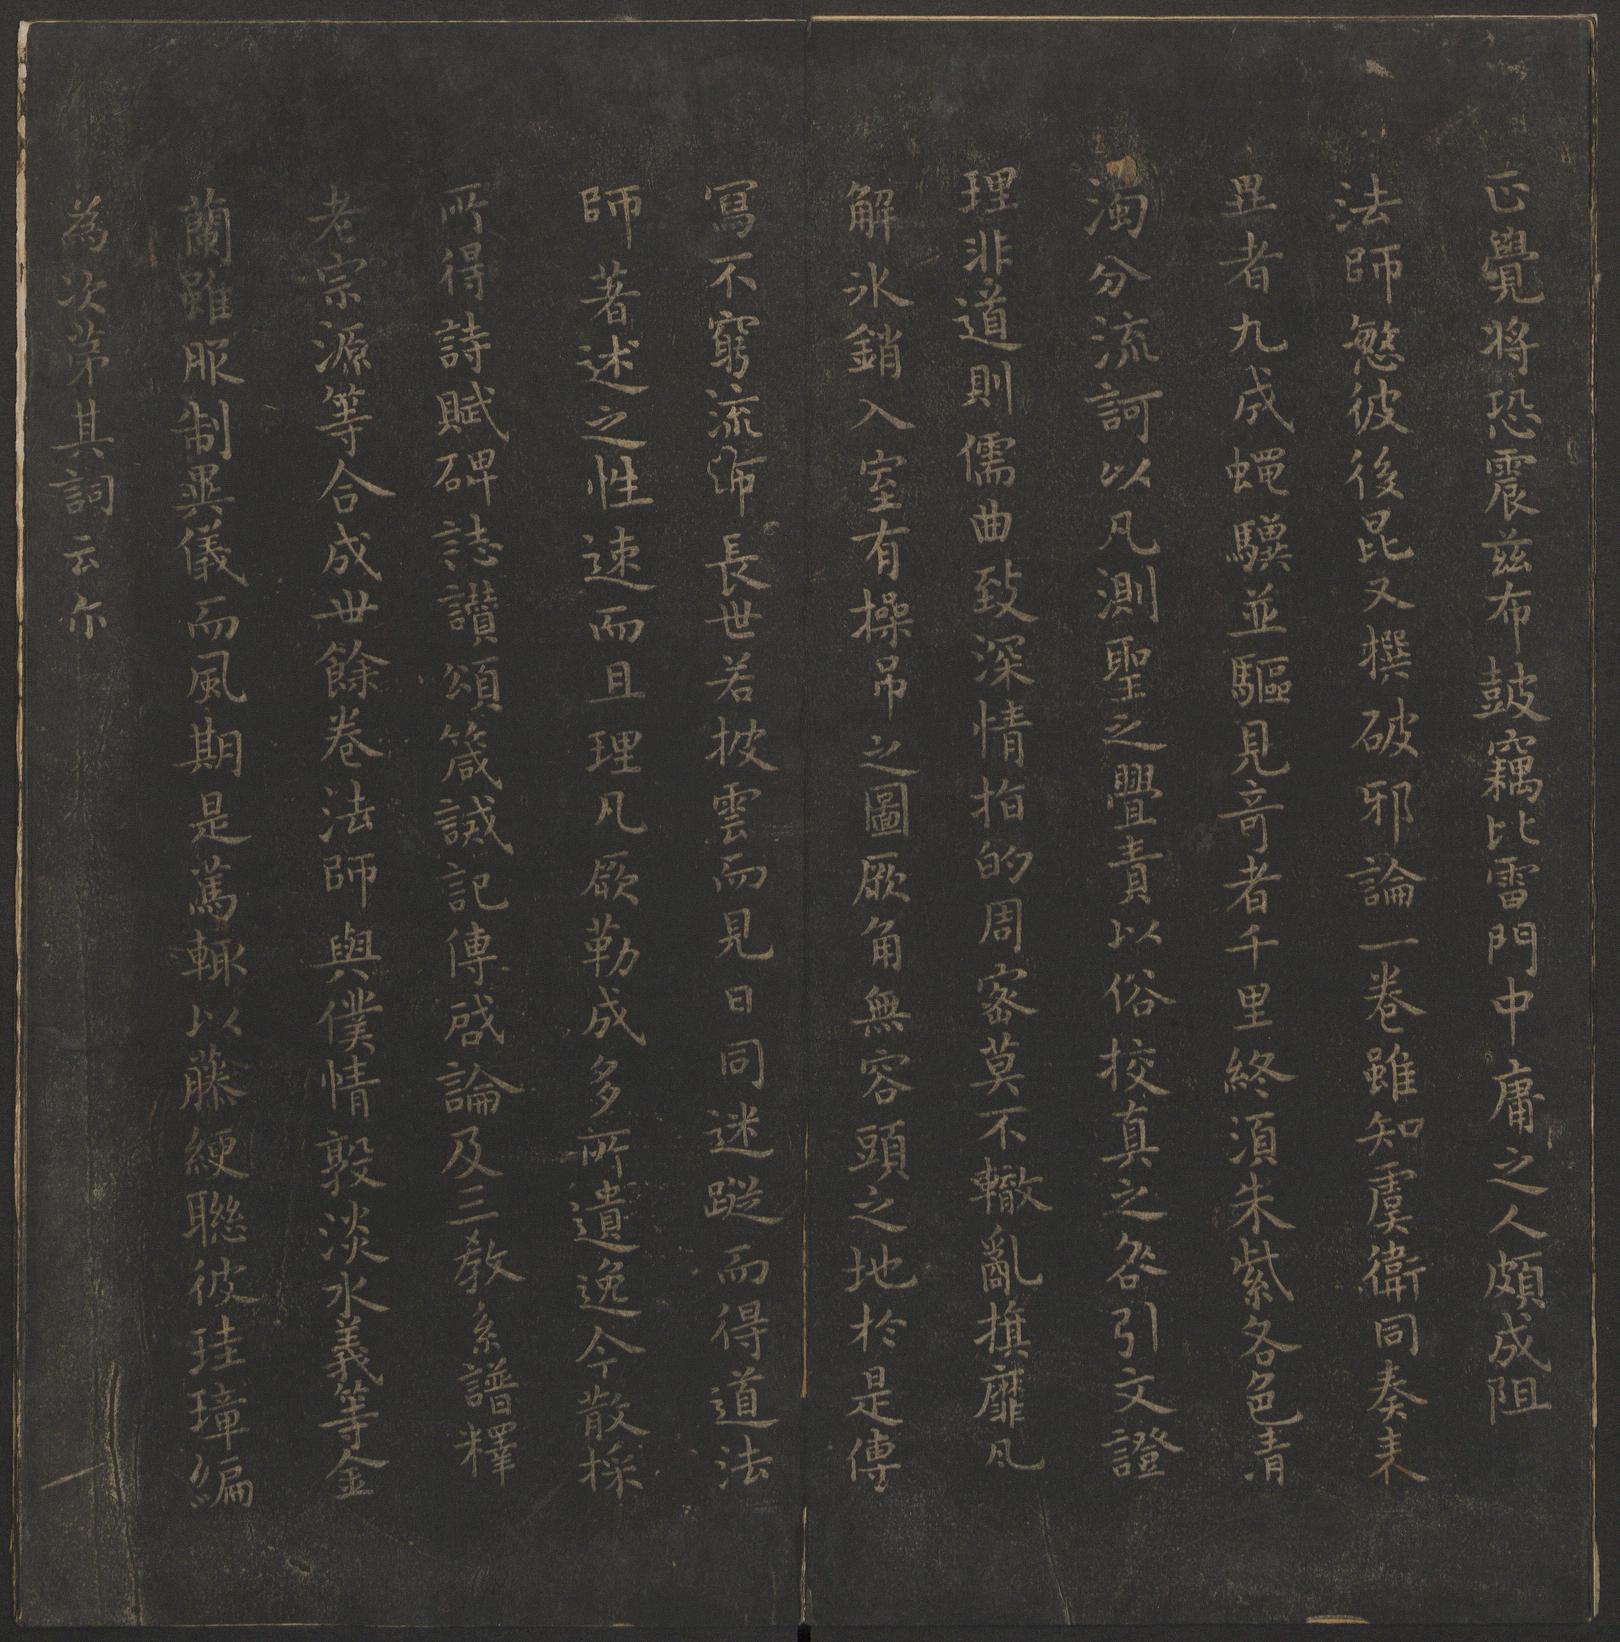 正覺將恐震兹布鼓竊比雷門中庸之人頗成阻
法師慜彼後昆又撰破邪論一卷雖知虞衞同奏表
異者九成蝇驥並驅見竒者千里終須朱紫各色清
濁分流訶以凡測聖之舋責以俗挍真之咎引文證
理非道則儒曲致深情指的周宻莫不轍亂旗靡凡
解氷銷入室有操吊之圖厥角無容頭之地於是傳
寫不窮流布長世若披雲而見日同迷蹤而得道法
師著述之性速而且理凡厥勒成多所遺逸今散採
所得詩賦碑誌讃頌箴誡記傳啓論及三教系譜釋
老宗源等合成卅餘卷法師與僕情敦淡水義等金
蘭雖服制異儀而風期是篤輙以藤綆聯彼珪璋編
為次第其詞云尒